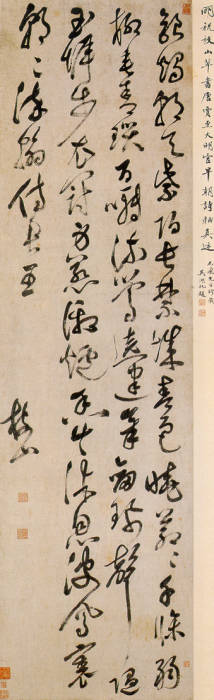 明祝枝山草書唐賈至大明宮早朝詩幅真迹
吳湖帆題
銀燭朝天紫陌長禁城春色曉蒼々千條弱
柳垂青瑣百囀流鶯遶建章劍珮聲隨
玉墀步衣冠身惹御爐香共沐恩波鳳裏
朝々染翰侍君王
枝山